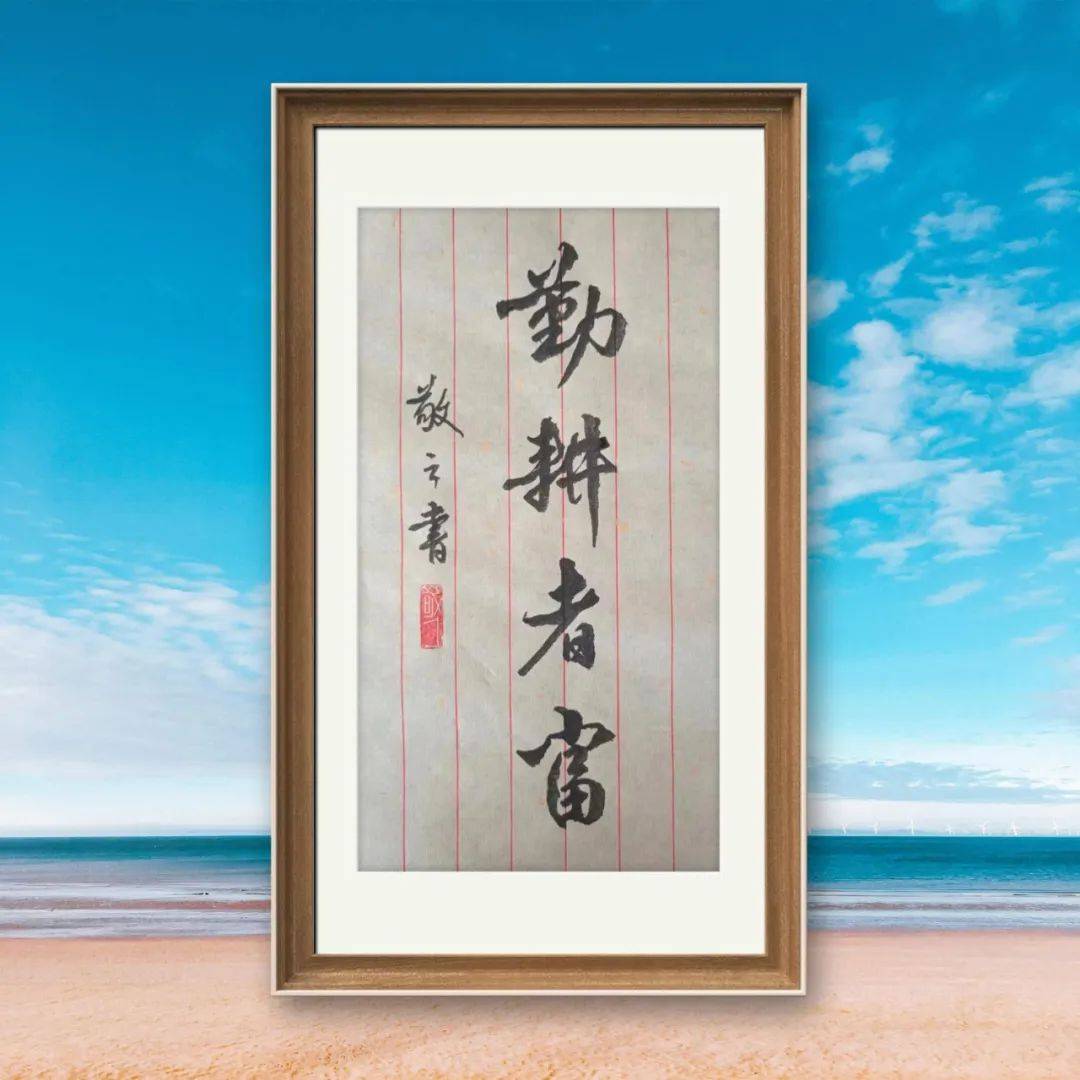 勤耕者富
敬之書